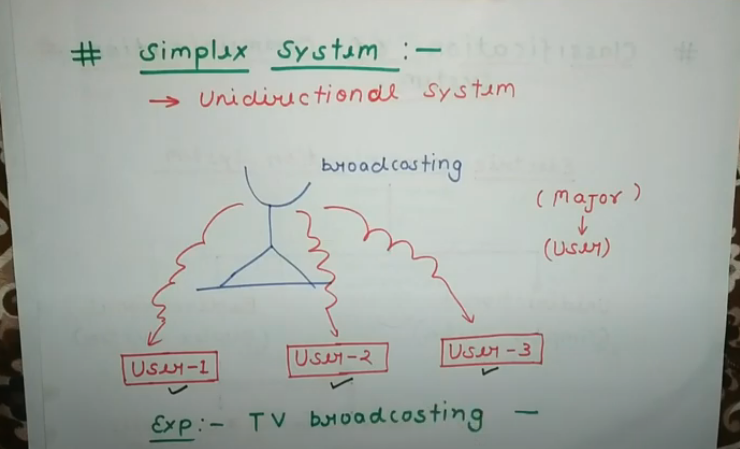 # Simplex System :-
→ Unidirectional System
broadcasting
(Major)
↓
(User)
User-1
User-2
User-3
Exp:- TV broadcasting -